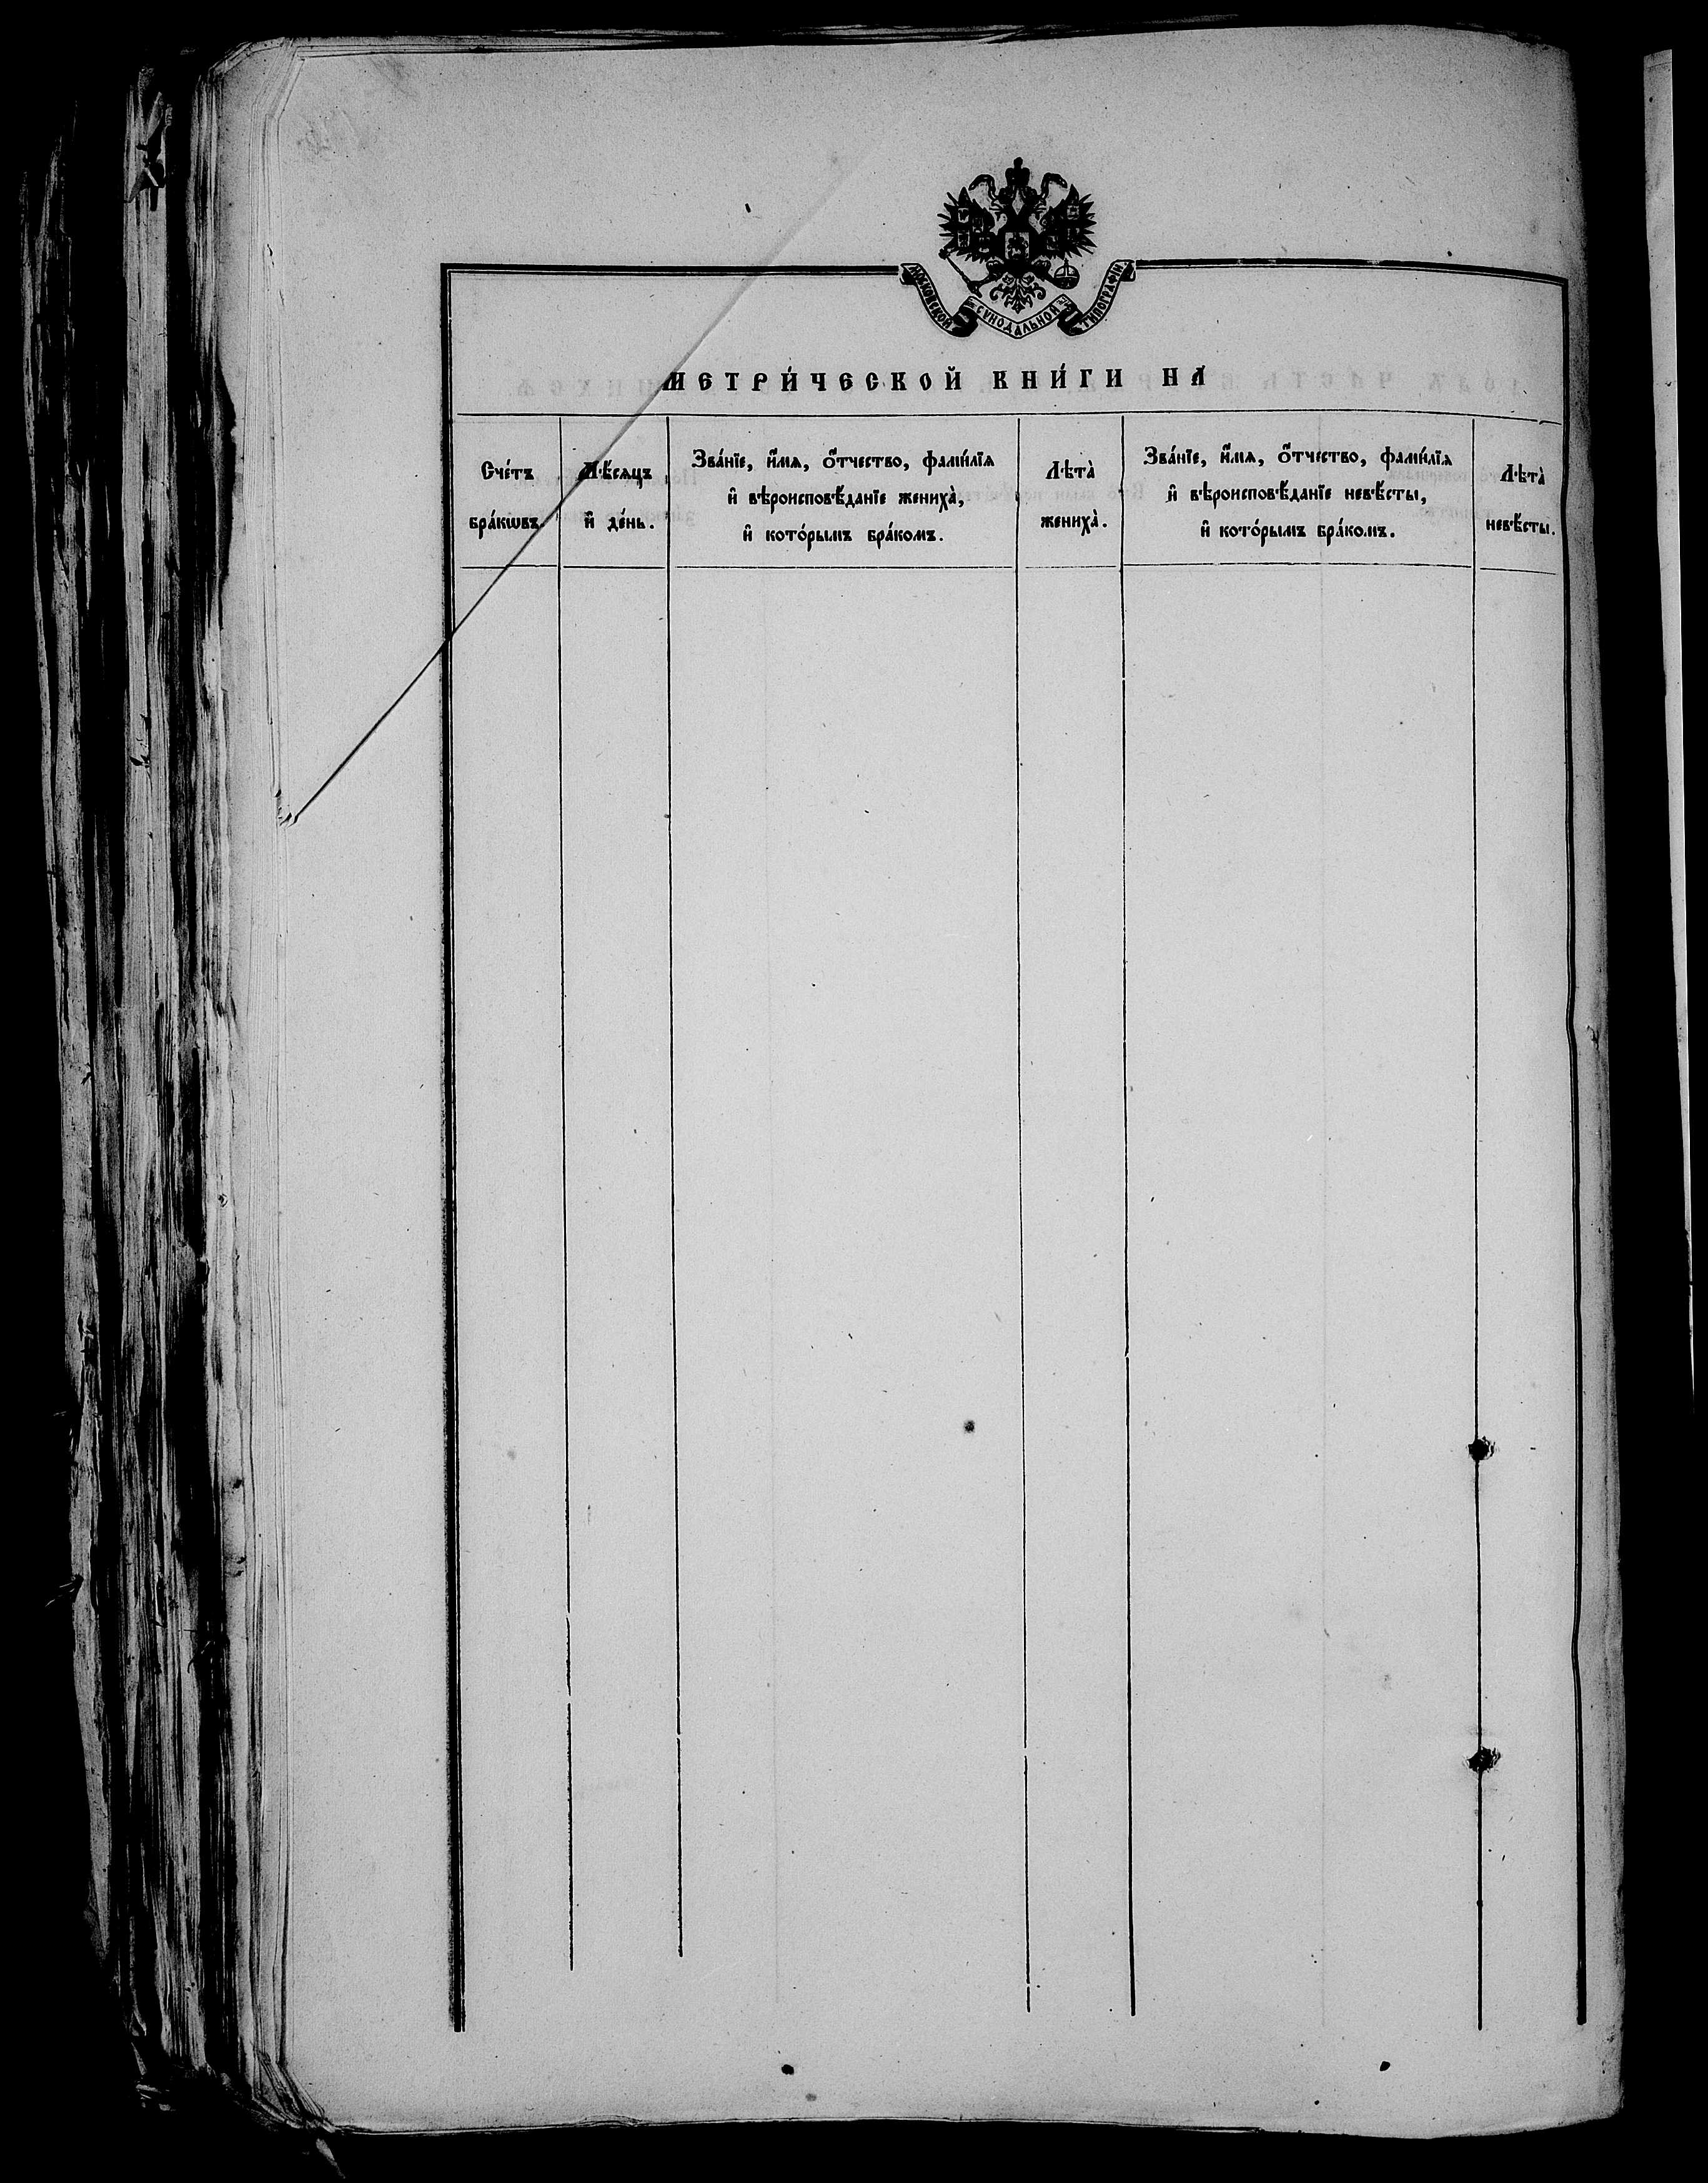 МОСКОВСКОЙ СѴНОДАЛЬНОЙ ТИПОГРАФІИ.
МЕТРИ́ЧЕСКОЙ КНИ́ГИ НА
Сче́тъ
бра́кѡвъ.
Мѣ́сяцъ
и҆ де́нь.
Зва́нїе, и҆́мѧ, о҆́тчество, фами́лїѧ
и҆ вѣроисповѣ́данїе жениха̀,
и҆ кото́рымъ бра́комъ.
Лѣта̀
жениха̀.
Зва́нїе, и҆́мѧ, о҆́тчество, фами́лїѧ
и҆ вѣроисповѣ́данїе невѣ́сты,
и҆ кото́рымъ бра́комъ.
Лѣта̀
невѣ́сты.